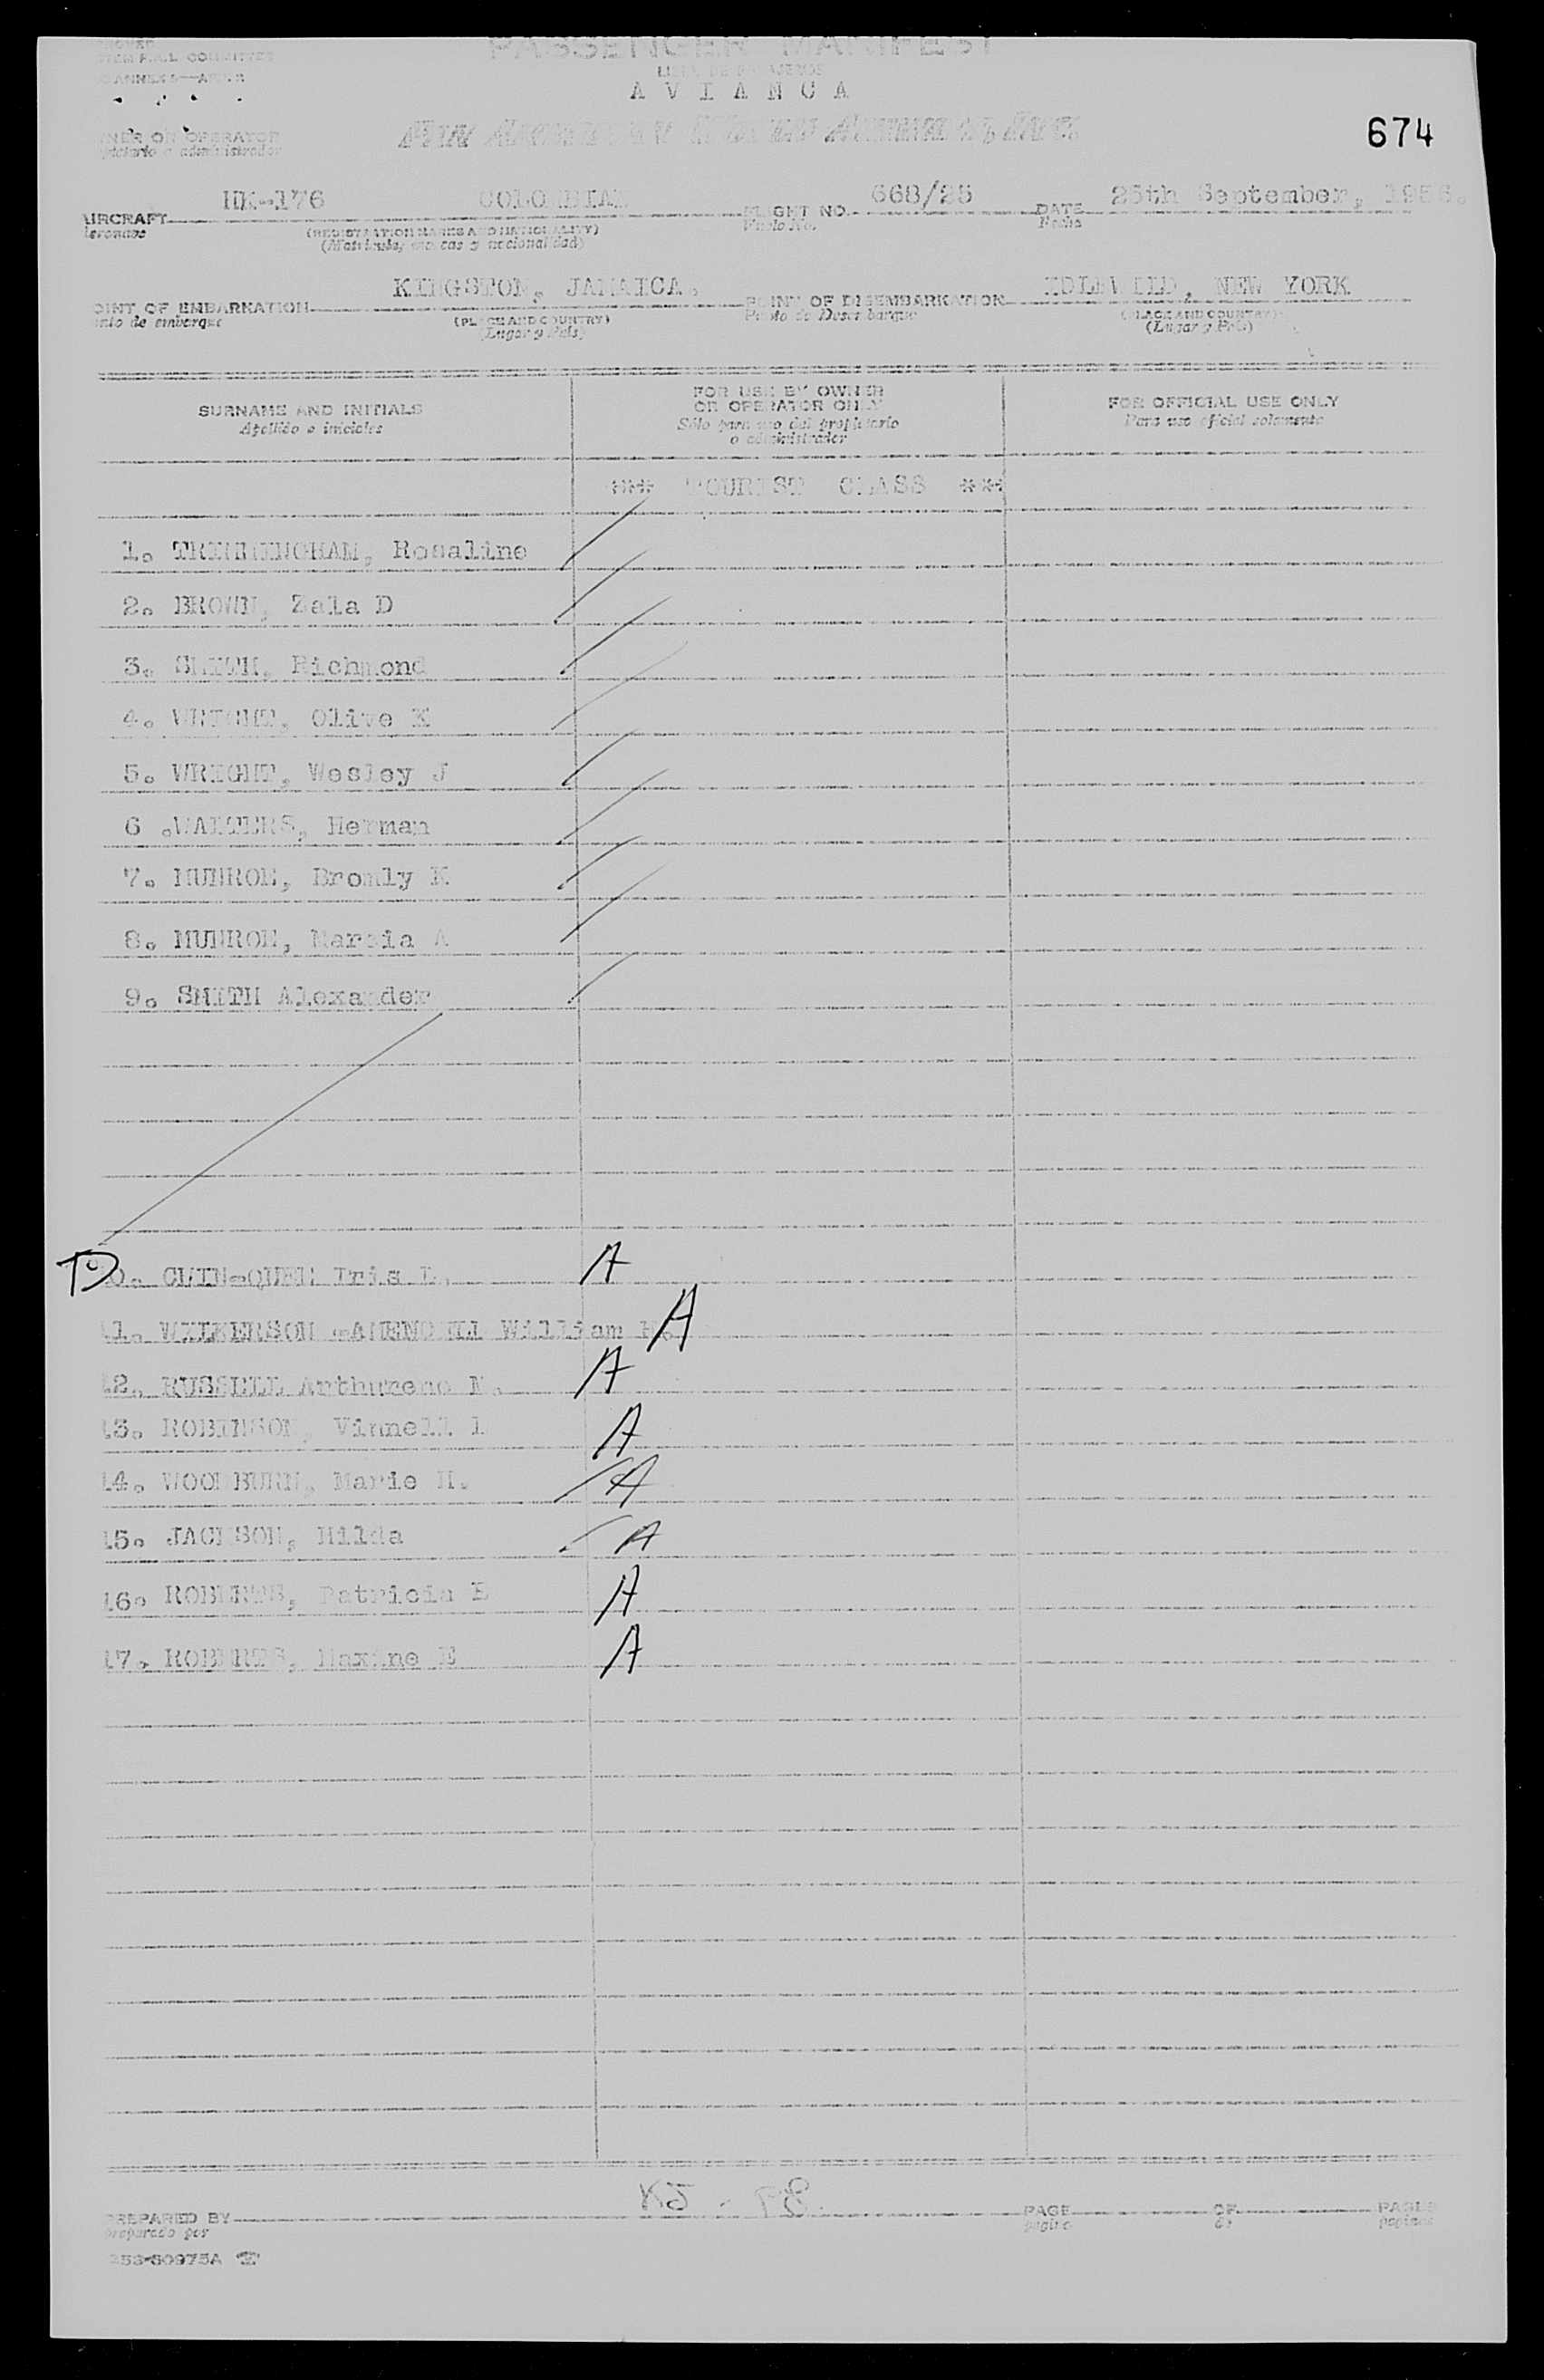 PASSENGER MANIFEST
LISTA DE PASAJEROS
A V I A N C A
OWNER OR OPERATOR
674
HK-176 COLOMBIAN 668/25 25th September, 1956.
AIRCRAFT FLIGHT NO. DATE
(REGISTRATION MARKS AND NATIONALITY) Vuelo No. Fecha
(Matrícula, marcas y nacionalidad)
KINGSTON, JAMAICA. IDLEWILD, NEW YORK
POINT OF EMBARKATION POINT OF DISEMBARKATION
(PLACE AND COUNTRY) Punto de Desembarque (PLACE AND COUNTRY)
(Lugar y País) (Lugar y País)
SURNAME AND INITIALS
Apellido e iniciales
FOR USE BY OWNER
OR OPERATOR ONLY
Sólo para uso del propietario
o administrador
FOR OFFICIAL USE ONLY
Para uso oficial solamente
*** TOURIST CLASS ***
1. TRIMMINGHAM, Rosaline
2. BROWN, Zala D
3. SMITH, Richmond
4. WRIGHT, Olive K
5. WRIGHT, Wesley J
6 .WALTERS, Herman
7. MUNROE, Bromly K
8. MUNROE, Marcia A
9. SMITH Alexander
10. CHIN-QUEE Iris A
11. WILKERSON William A
12. RUSSELL Arthurene A
13. ROBINSON, Vinnell A
14. WOODBURN, Marie H. A
15. JACKSON, Hilda A
16. ROBERTS, Patricia E A
17. ROBERTS, Maxine E A
PREPARED BY PAGE OF PAGES
preparado por página de páginas